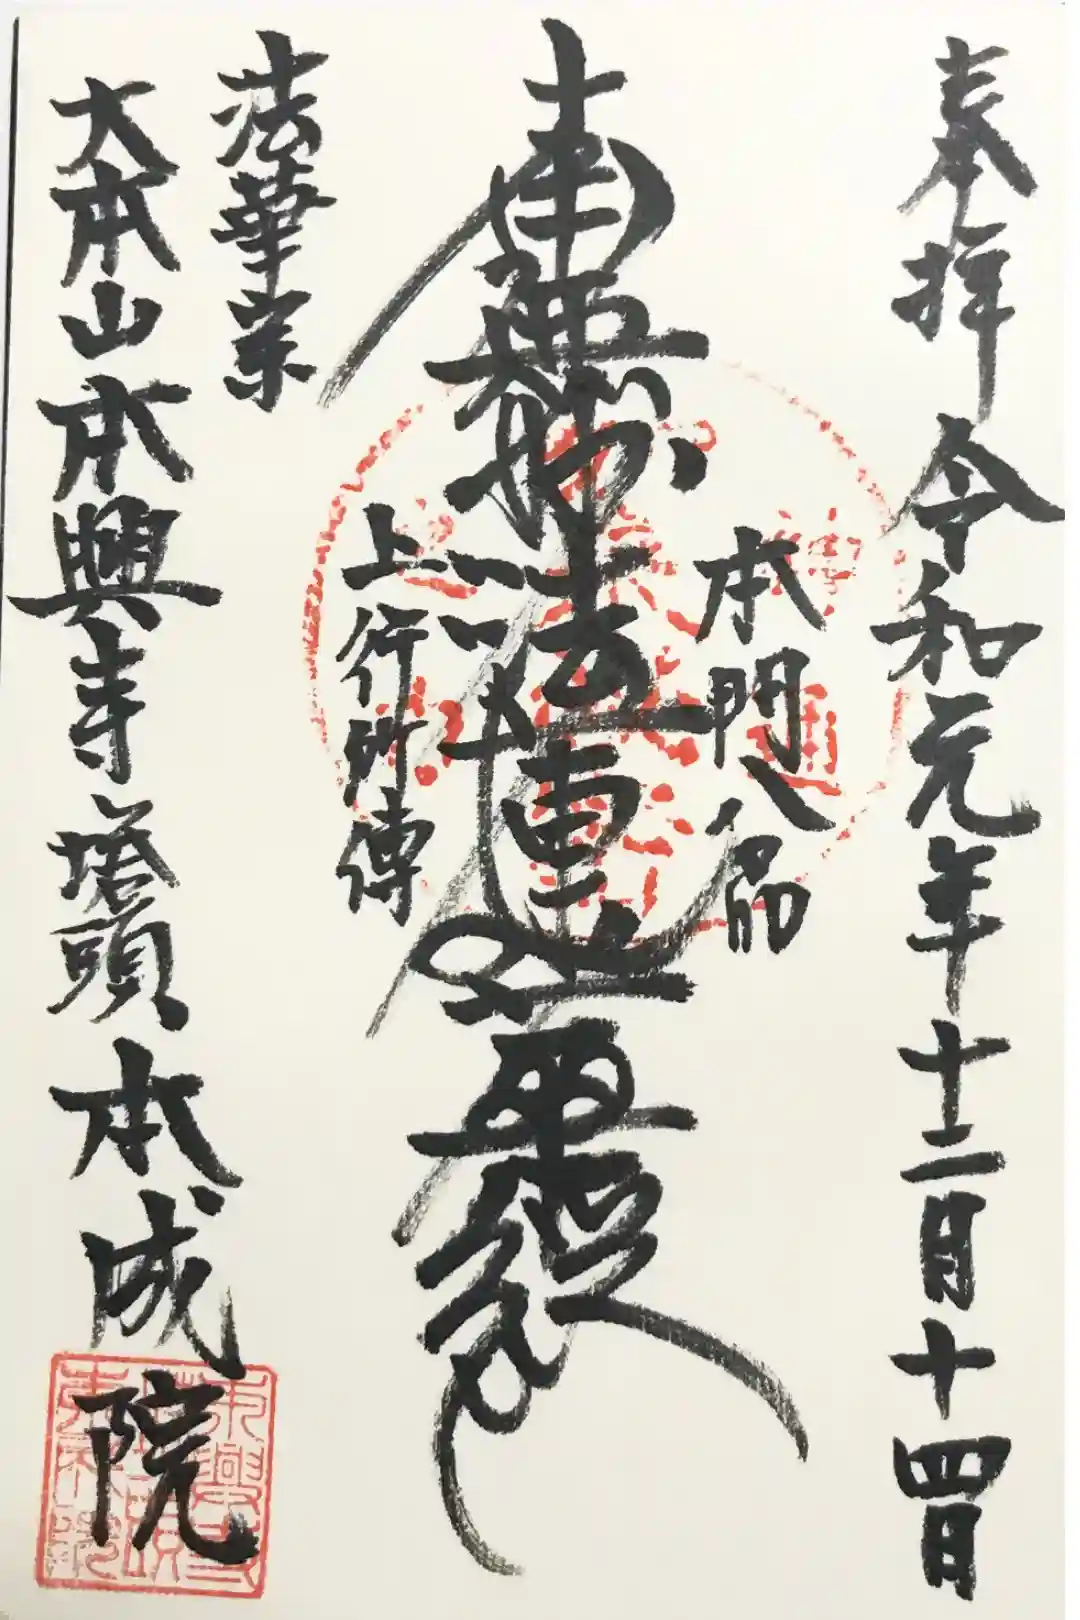 奉拝 令和元年十二月十四日
本門八品
南無妙法蓮華経
上行所傳
法華宗
大本山本興寺塔頭本成院
本興寺
塔頭
本成院